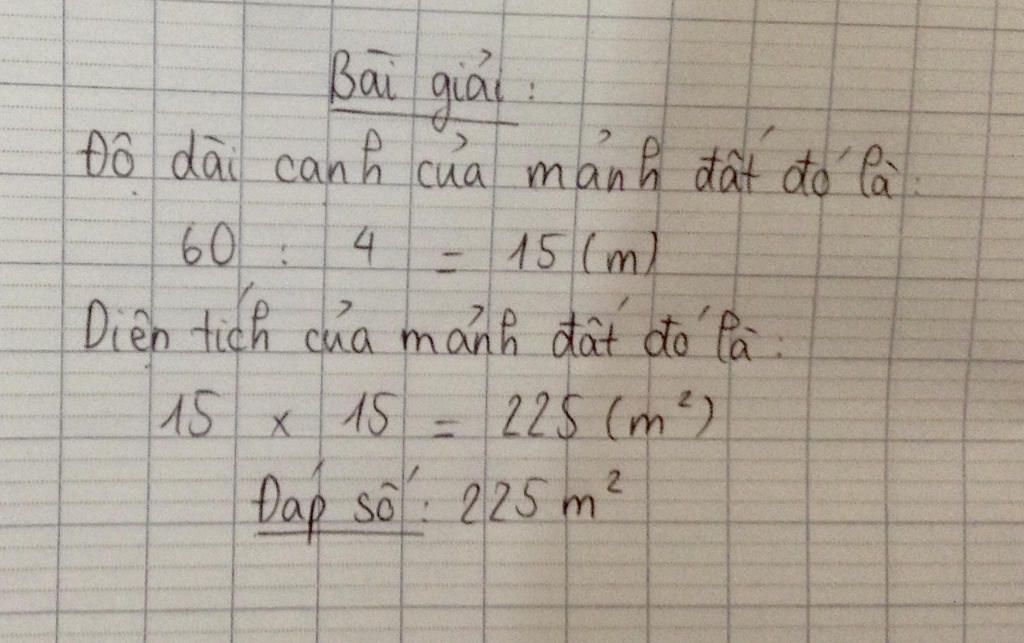 Bài giải:
Độ dài cạnh của mảnh đất đó là:
60 : 4 = 15 (m)
Diện tích của mảnh đất đó là:
15 x 15 = 225 (m²)
Đáp số: 225 m²